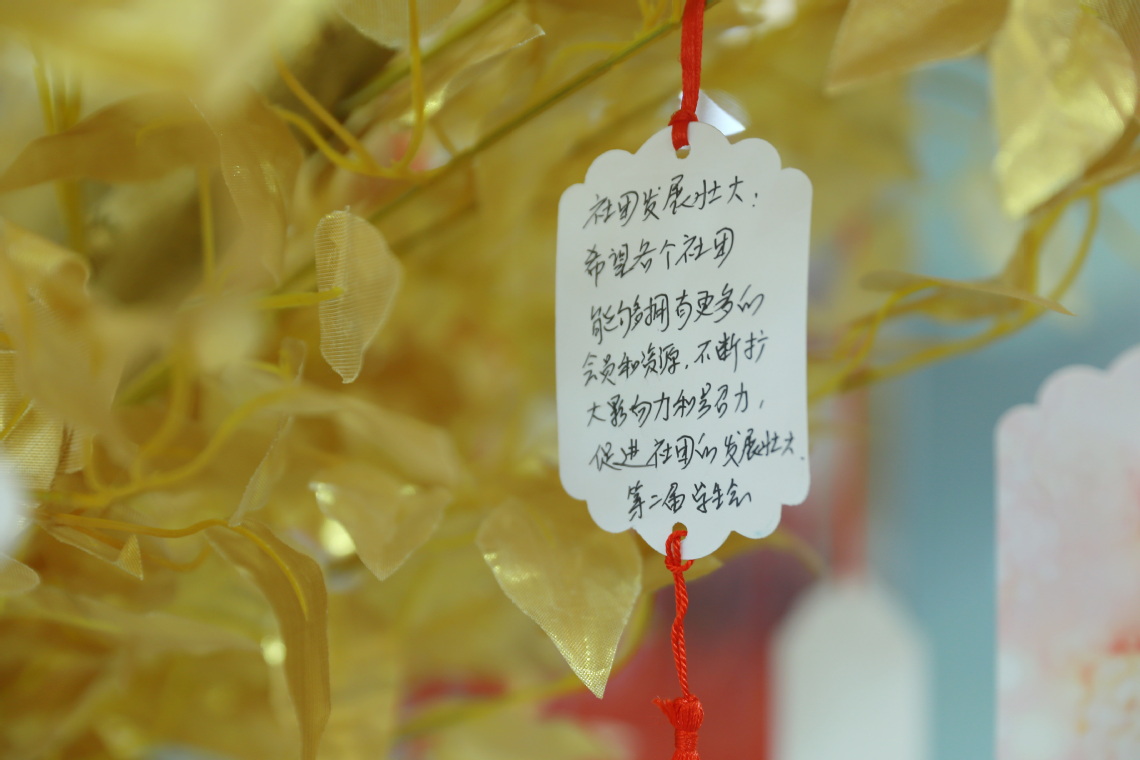 社团发展壮大：
希望各个社团
能够拥有更多的
会员和资源，不断扩
大影响力和号召力，
促进社团的发展壮大.
第二届学生会